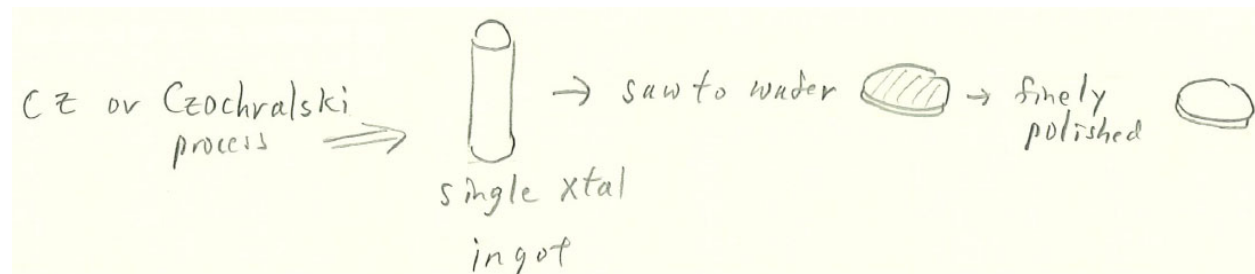 CZ or Czochralski
process
single xtal
ingot
→ saw to wafer
→ finely
polished